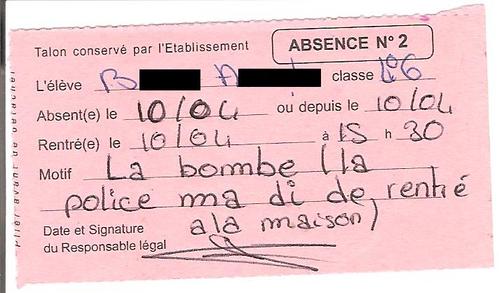 Talon conservé par l'Etablissement
ABSENCE N° 2
L'élève B A classe 1°6
Absent(e) le 10/04 ou depuis le 10/04
Rentré(e) le 10/04 à 15 h 30
Motif La bombe (la
police ma di de rentré
a la maison)
Date et Signature
du Responsable légal
Plier avant de détacher